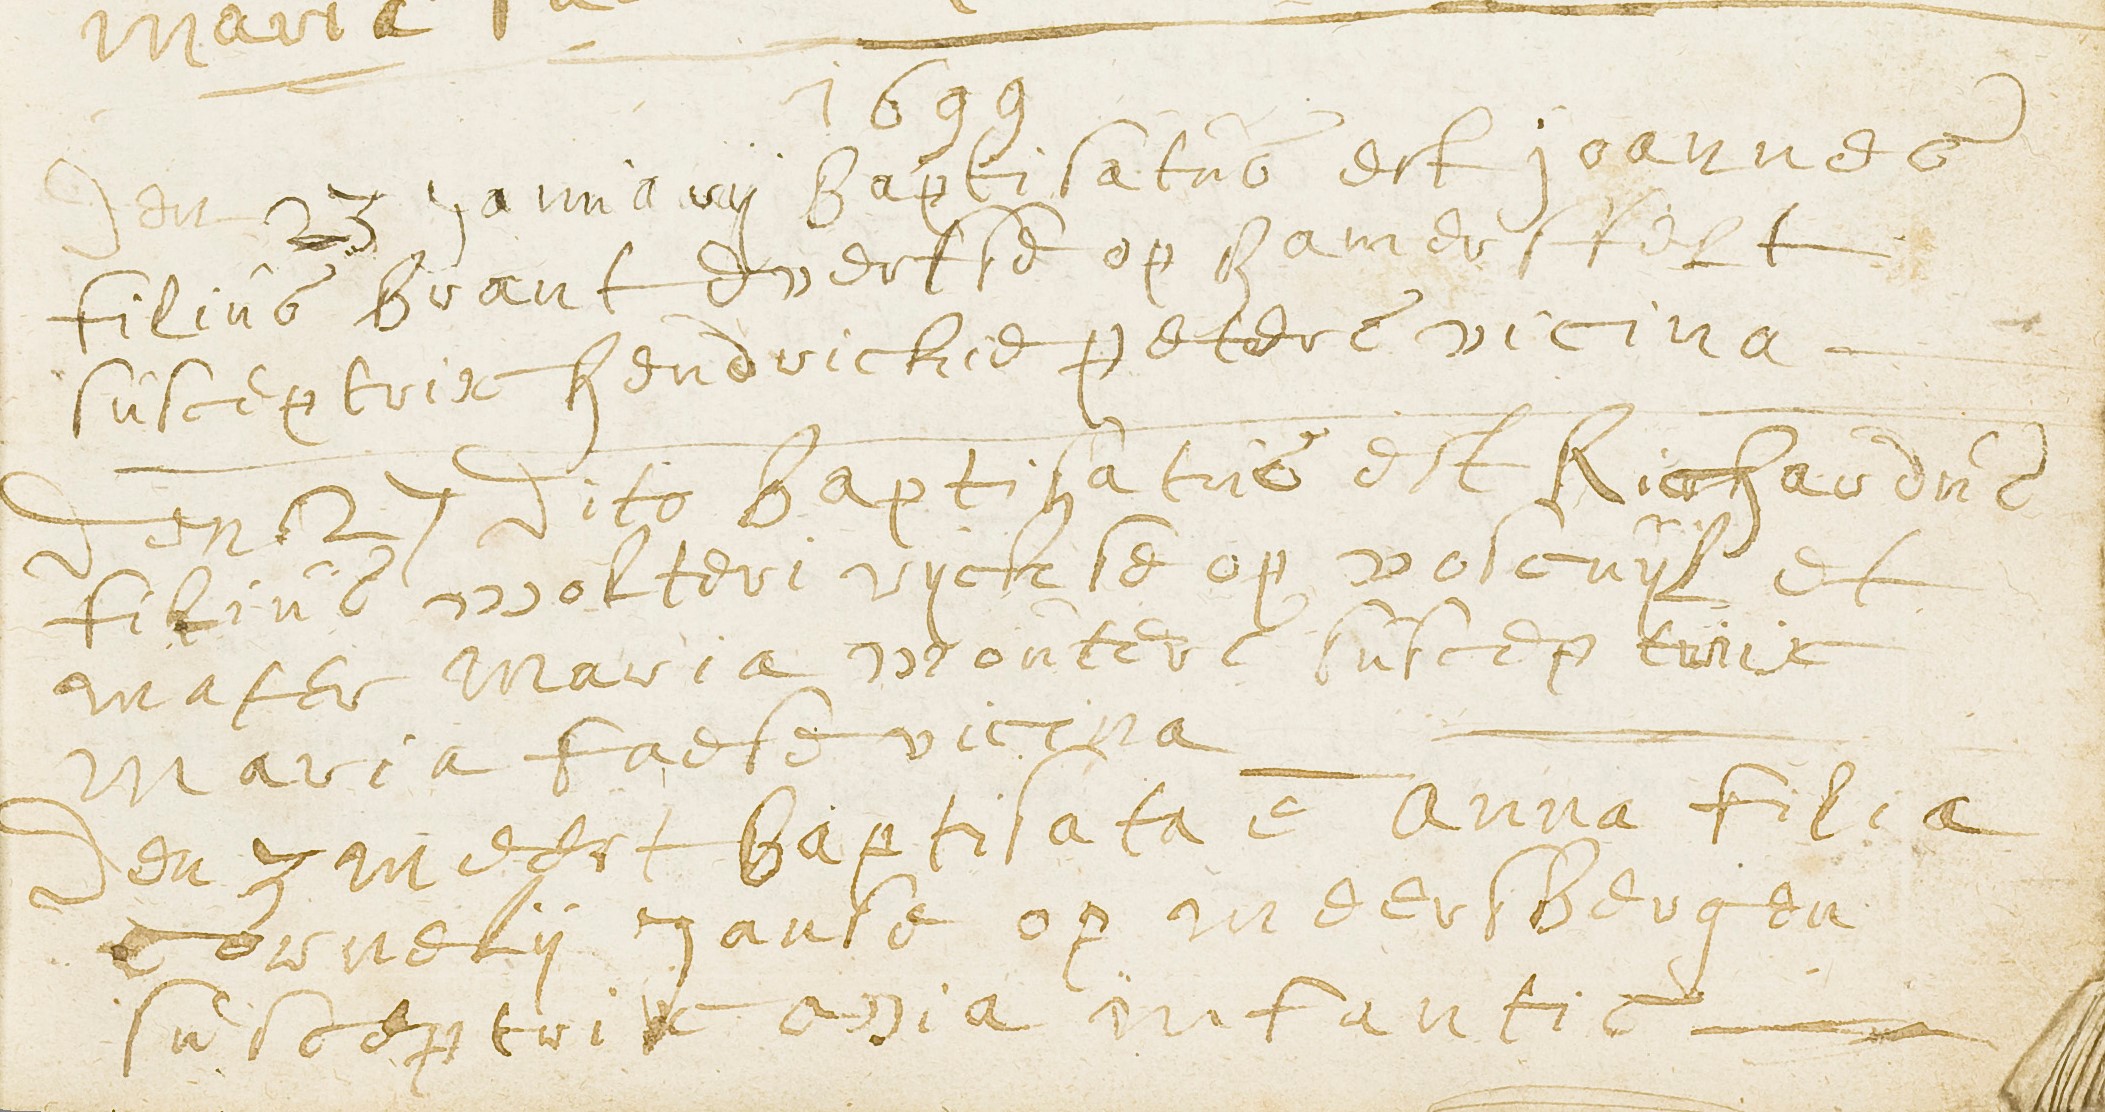 Maria
1699
Den 23 Januarij Baptisatus est Joannes
filius Brant Evertse op Hamersfelt
susceptrix Hendrickie Peters vicina
Den 27 Dito Baptisatus est Richardus
filius Wolteri Rijckse op Voscuijl et
mater Maria Wouters susceptrix
Maria Faesse vicina
Den 3 Meert Baptisata e Anna filia
Cornelij Janse op Meersbergen
susceptrix avia infantis